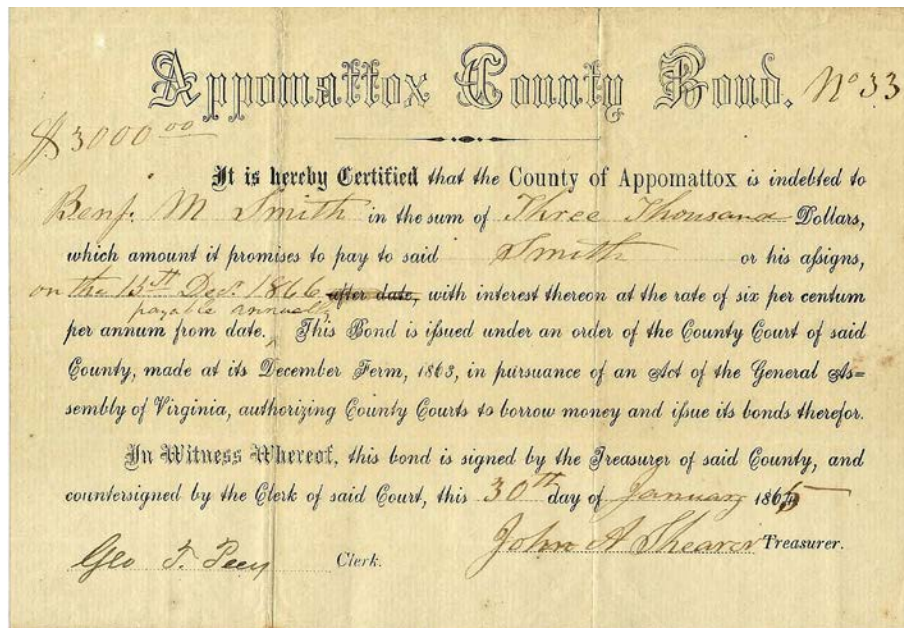 Appomattox County Bond. No 33
$3000.00
It is hereby Certified that the County of Appomattox is indebted to
Benj. M Smith in the sum of Three Thousand Dollars,
which amount it promises to pay to said Smith or his assigns,
on the 13th Decr. 1866 after date, with interest thereon at the rate of six per centum
payable annually
per annum from date. This Bond is issued under an order of the County Court of said
County, made at its December Term, 1863, in pursuance of an Act of the General As=
sembly of Virginia, authorizing County Courts to borrow money and issue its bonds therefor.
In Witness Whereof, this bond is signed by the Treasurer of said County, and
countersigned by the Clerk of said Court, this 30th day of January 1865
John A Shearer Treasurer.
Geo T. Peers Clerk.